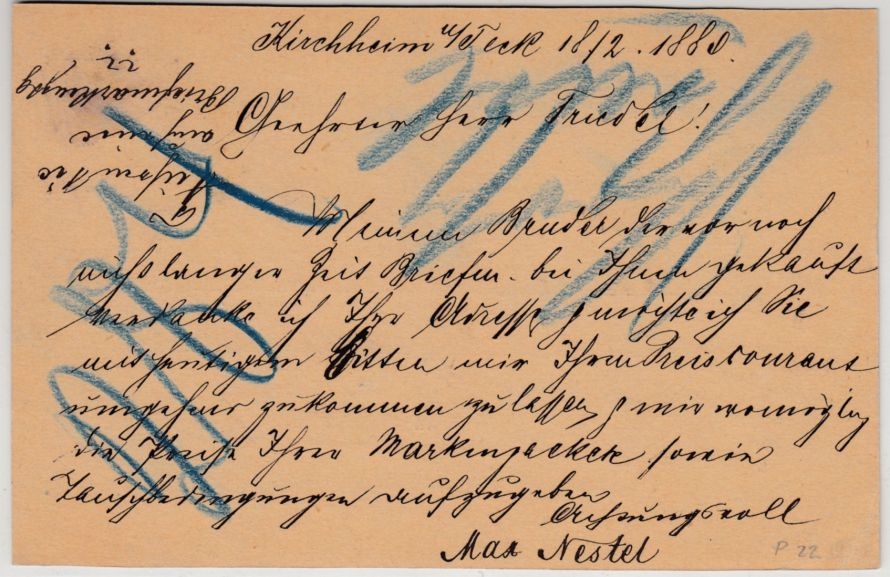 Kirchheim u/Teck 18/2. 1880.
Geehrter Herr Friedel!
Meinem Bruder der vor noch
nicht langer Zeit Briefm. bei Ihnen gekauft
verdanke ich Ihre Adresse & möchte ich Sie
mit heutigem bitten mir Ihren Preiscourant
umgehend zukommen zu lassen, & mir womöglich
die Preise Ihrer Markenpackete sowie
Tauschbedingungen aufzugeben
Achtungsvoll
Max Nestel
auch eine
Briefmarkenztg
??
P 22